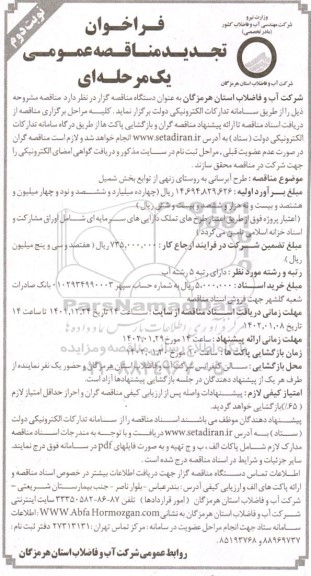 نوبت دوم
وزارت نیرو
شرکت مهندسی آب و فاضلاب کشور
(مادر تخصصی)
شرکت آب و فاضلاب استان هرمزگان
فراخوان
تجدید مناقصه عمومی
یک مرحله‌ای
شرکت آب و فاضلاب استان هرمزگان به عنوان دستگاه مناقصه گزار در نظر دارد مناقصه مشروحه
ذیل را از طریق سامانه تدارکات الکترونیکی دولت برگزار نماید. کلیه مراحل برگزاری مناقصه از
دریافت اسناد مناقصه تا ارائه پیشنهاد مناقصه گران و بازگشایی پاکت ها از طریق درگاه سامانه تدارکات
الکترونیکی دولت (ستاد) به آدرس www.setadiran.ir انجام خواهد شد و لازم است مناقصه گران
در صورت عدم عضویت قبلی، مراحل ثبت نام در سایت مذکور و دریافت گواهی امضای الکترونیکی را
جهت شرکت در مناقصه محقق سازند.
موضوع مناقصه: طرح آبرسانی به روستای زنهی از توابع بخش شمیل
مبلغ برآورد اولیه: ۱۴,۶۹۴,۸۲۹,۶۳۶ ریال (چهارده میلیارد و ششصد و نود و چهار میلیون و
هشتصد و بیست و نه هزار و ششصد و سی و شش ریال)
(اعتبار پروژه فوق از طریق اعتبار طرح های تملک دارایی های سرمایه ای شامل اوراق مشارکت و
اسناد خزانه اسلامی تامین می گردد)
مبلغ تضمین شرکت در فرآیند ارجاع کار: ۷۳۵,۰۰۰,۰۰۰ ریال (هفتصد و سی و پنج میلیون
ریال)
رتبه و رشته مورد نظر: دارای رتبه ۵ رشته آب
خرید اسناد: ۵,۰۰۰,۰۰۰ ریال به شماره حساب سپهر ۰۱۰۲۹۳۴۹۹۰۰۰۳ بانک صادرات
شعبه گلشهر جهت فروش اسناد مناقصه
مهلت زمانی دریافت اسناد مناقصه از سایت: ساعت ۱۴ تاریخ ۱۴۰۱,۱۲,۲۴ تا ساعت ۱۴
تاریخ ۱۴۰۲,۰۱,۰۸
مهلت زمانی ارائه پیشنهاد: ساعت ۱۴ مورخ ۱۴۰۲,۰۱,۲۹
زمان بازگشایی پاکت ها: ساعت
محل بازگشایی: سالن کنفرانس شرکت آب و فاضلاب استان هرمزگان و حضور یک نفر نماینده از
طرف هر یک از پیشنهاد دهندگان در جلسه بازگشایی پیشنهادها آزاد است.
امتیاز کیفی لازم: پیشنهادات واصله پس از ارزیابی کیفی مناقصه گران و احراز حداقل امتیاز لازم
(۶۵٪) بازگشایی خواهد گردید.
پیشنهاد دهندگان موظف می باشند اسناد مناقصه را از سامانه تدارکات الکترونیکی دولت
(ستاد) به آدرس www.setadiran.ir دریافت و با توجه به مندرجات اسناد مناقصه
مدارک لازم شامل پاکات الف، ب و ج تهیه و به صورت فایلهای pdf در سامانه فوق درج نمایند.
سایر جزئیات و شرایط در اسناد مناقصه درج شده است.
اطلاعات تماس دستگاه مناقصه گزار جهت دریافت اطلاعات بیشتر در خصوص اسناد مناقصه و
ارائه پاکت های الف و ارزیابی کیفی آدرس: بندرعباس - بلوار ناصر - جنب بیمارستان شریعتی -
شرکت آب و فاضلاب استان هرمزگان (امور قراردادها) تلفن ۸۷-۳۳۳۵۰۵۸۲-۸۶ سایت اینترنتی
شرکت آب و فاضلاب استان هرمزگان به نشانی WWW.AbfaHormozgan.com: اطلاعات
سامانه ستاد جهت انجام مراحل عضویت در سامانه: مرکز تماس تهران: ۲۷۳۱۳۱۳۱ دفتر ثبت نام:
۸۸۹۶۹۷۳۷ و ۸۵۱۹۳۷۶۸.
روابط عمومی شرکت آب و فاضلاب استان هرمزگان